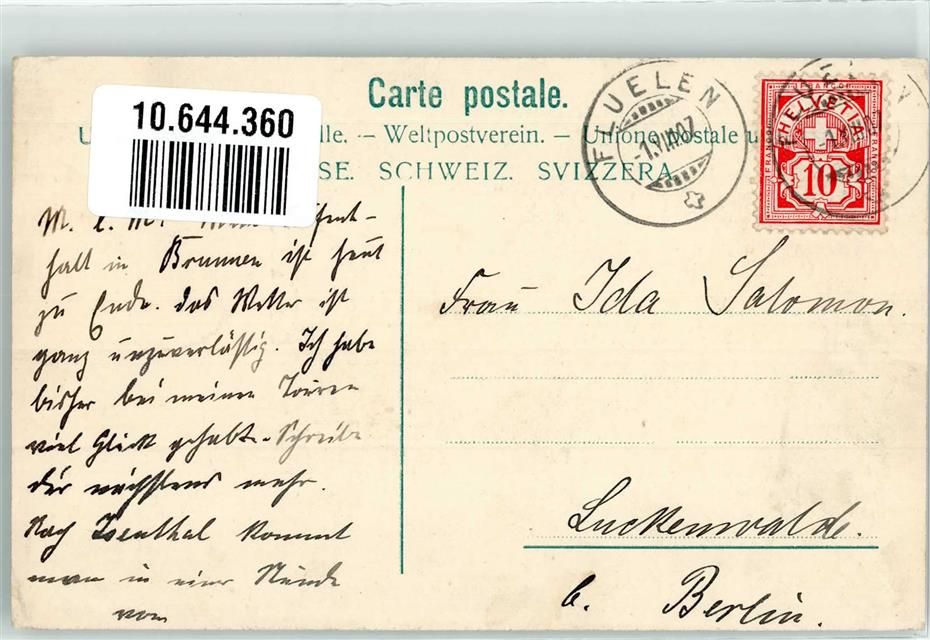 Carte postale.
10.644.360
lle. – Weltpostverein. – Unione postale u
SE. SCHWEIZ. SVIZZERA
FLUELEN
-1.VII.07
HELVETIA
FRANCO FRANCO
10
M. l.
halt in Brunnen ist heut
zu Ende. das Wetter ist
ganz unzuverlässig. Ich habe
bisher bei meinen Touren
viel Glück gehabt. Schreibe
dir nächstens mehr.
Nach Isenthal kommt
man in einer Stunde
von
Frau Ida Salomon.
Luckenwalde.
b. Berlin.